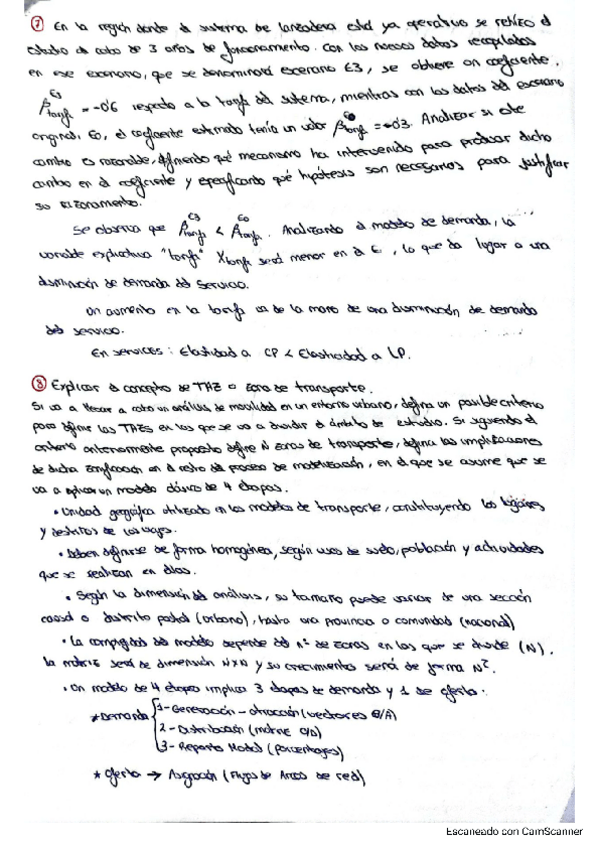 ⑦ En la región donde el sistema de lanzadera está ya operativo se rehízo el
estudio al cabo de 3 años de funcionamiento. Con los nuevos datos recopilados
en ese escenario, que se denominará escenario E3, se obtiene un coeficiente
β^E3_tarifa = -0'6 respecto a la tarifa del sistema, mientras con los datos del escenario
original, E0, el coeficiente estimado tenía un valor β^E0_tarifa = -0'3. Analizar si este
cambio es razonable, definiendo qué mecanismo ha intervenido para producir dicho
cambio en el coeficiente y especificando qué hipótesis son necesarias para justificar
su razonamiento.
Se observa que β^E3_tarifa < β^E0_tarifa. Analizando el modelo de demanda, la
variable explicativa "tarifa" X_tarifa será menor en el E, lo que da lugar a una
disminución de demanda del servicio.
Un aumento en la tarifa va de la mano de una disminución de demanda
del servicio.
En servicios: Elasticidad a CP < Elasticidad a LP.
⑧ Explicar el concepto de TAZ o zona de transporte.
Si va a llevar a cabo un análisis de movilidad en un entorno urbano, defina un posible criterio
para definir las TAZs en las que se va a dividir el ámbito de estudio. Si siguiendo el
criterio anteriormente propuesto define N zonas de transporte, defina las implicaciones
de dicha zonificación en el resto del proceso de modelización, en el que se asume que se
va a aplicar un modelo clásico de 4 etapas.
• Unidad geográfica utilizada en los modelos de transporte, constituyendo los orígenes
y destinos de los viajes.
• Deben definirse de forma homogénea, según usos de suelo, población y actividades
que se realizan en ellas.
• Según la dimensión del análisis, su tamaño puede variar de una sección
censal o distrito postal (urbano), hasta una provincia o comunidad (nacional)
• La complejidad del modelo depende del nº de zonas en las que se divide (N).
La matriz será de dimensión NxN y su crecimiento será de forma N².
• Un modelo de 4 etapas implica 3 etapas de demanda y 1 de oferta:
* Demanda { 1- Generación - atracción (vectores G/A)
2- Distribución (matriz O/D)
3- Reparto Modal (porcentajes)
* Oferta → Asignación (Flujos de Arcos de red)
Escaneado con CamScanner